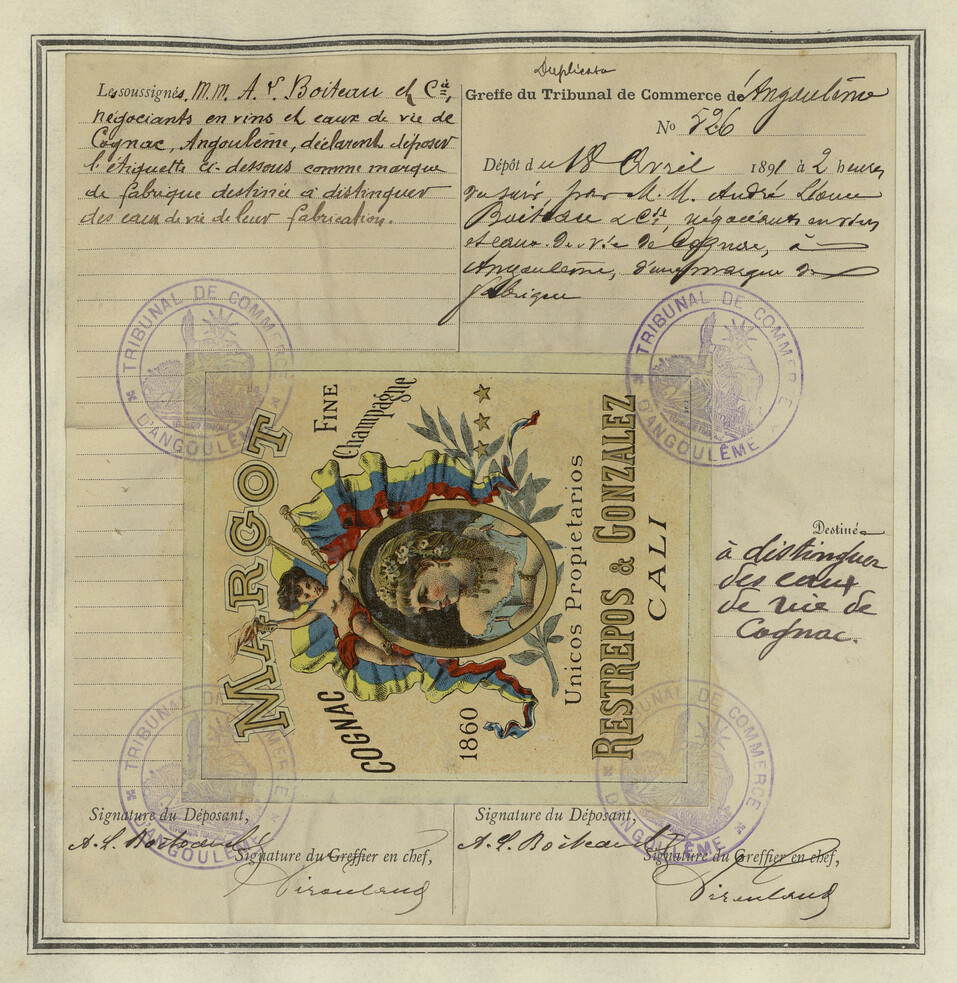 Les soussignés, M.M. A. L. Boiteau et Cie,
négociants en vins et eaux de vie de
Cognac, Angoulême, déclarent déposer
l'étiquette ci-dessous comme marque
de fabrique destinée à distinguer
des eaux de vie de leur fabrication.
Duplicata
Greffe du Tribunal de Commerce de Angoulême
No 526
Dépôt du 18 Avril 1891 à 2 heures
du soir par M. M. André Léonce
Boiteau & Cie, négociants en vins
et eaux-de-vie de Cognac, à
Angoulême, d'une marque de
fabrique
TRIBUNAL DE COMMERCE
D'ANGOULÊME
TRIBUNAL DE COMMERCE
D'ANGOULÊME
MARGOT
FINE
Champagne
COGNAC
1860
Unicos Propietarios
RESTREPOS & GONZALEZ
CALI
Destiné
à distinguer
des eaux
de vie de
Cognac.
TRIBUNAL DE COMMERCE
D'ANGOULÊME
TRIBUNAL DE COMMERCE
D'ANGOULÊME
Signature du Déposant,
A. L. Boiteau
Signature du Greffier en chef,
Signature du Déposant,
A. L. Boiteau
Signature du Greffier en chef,